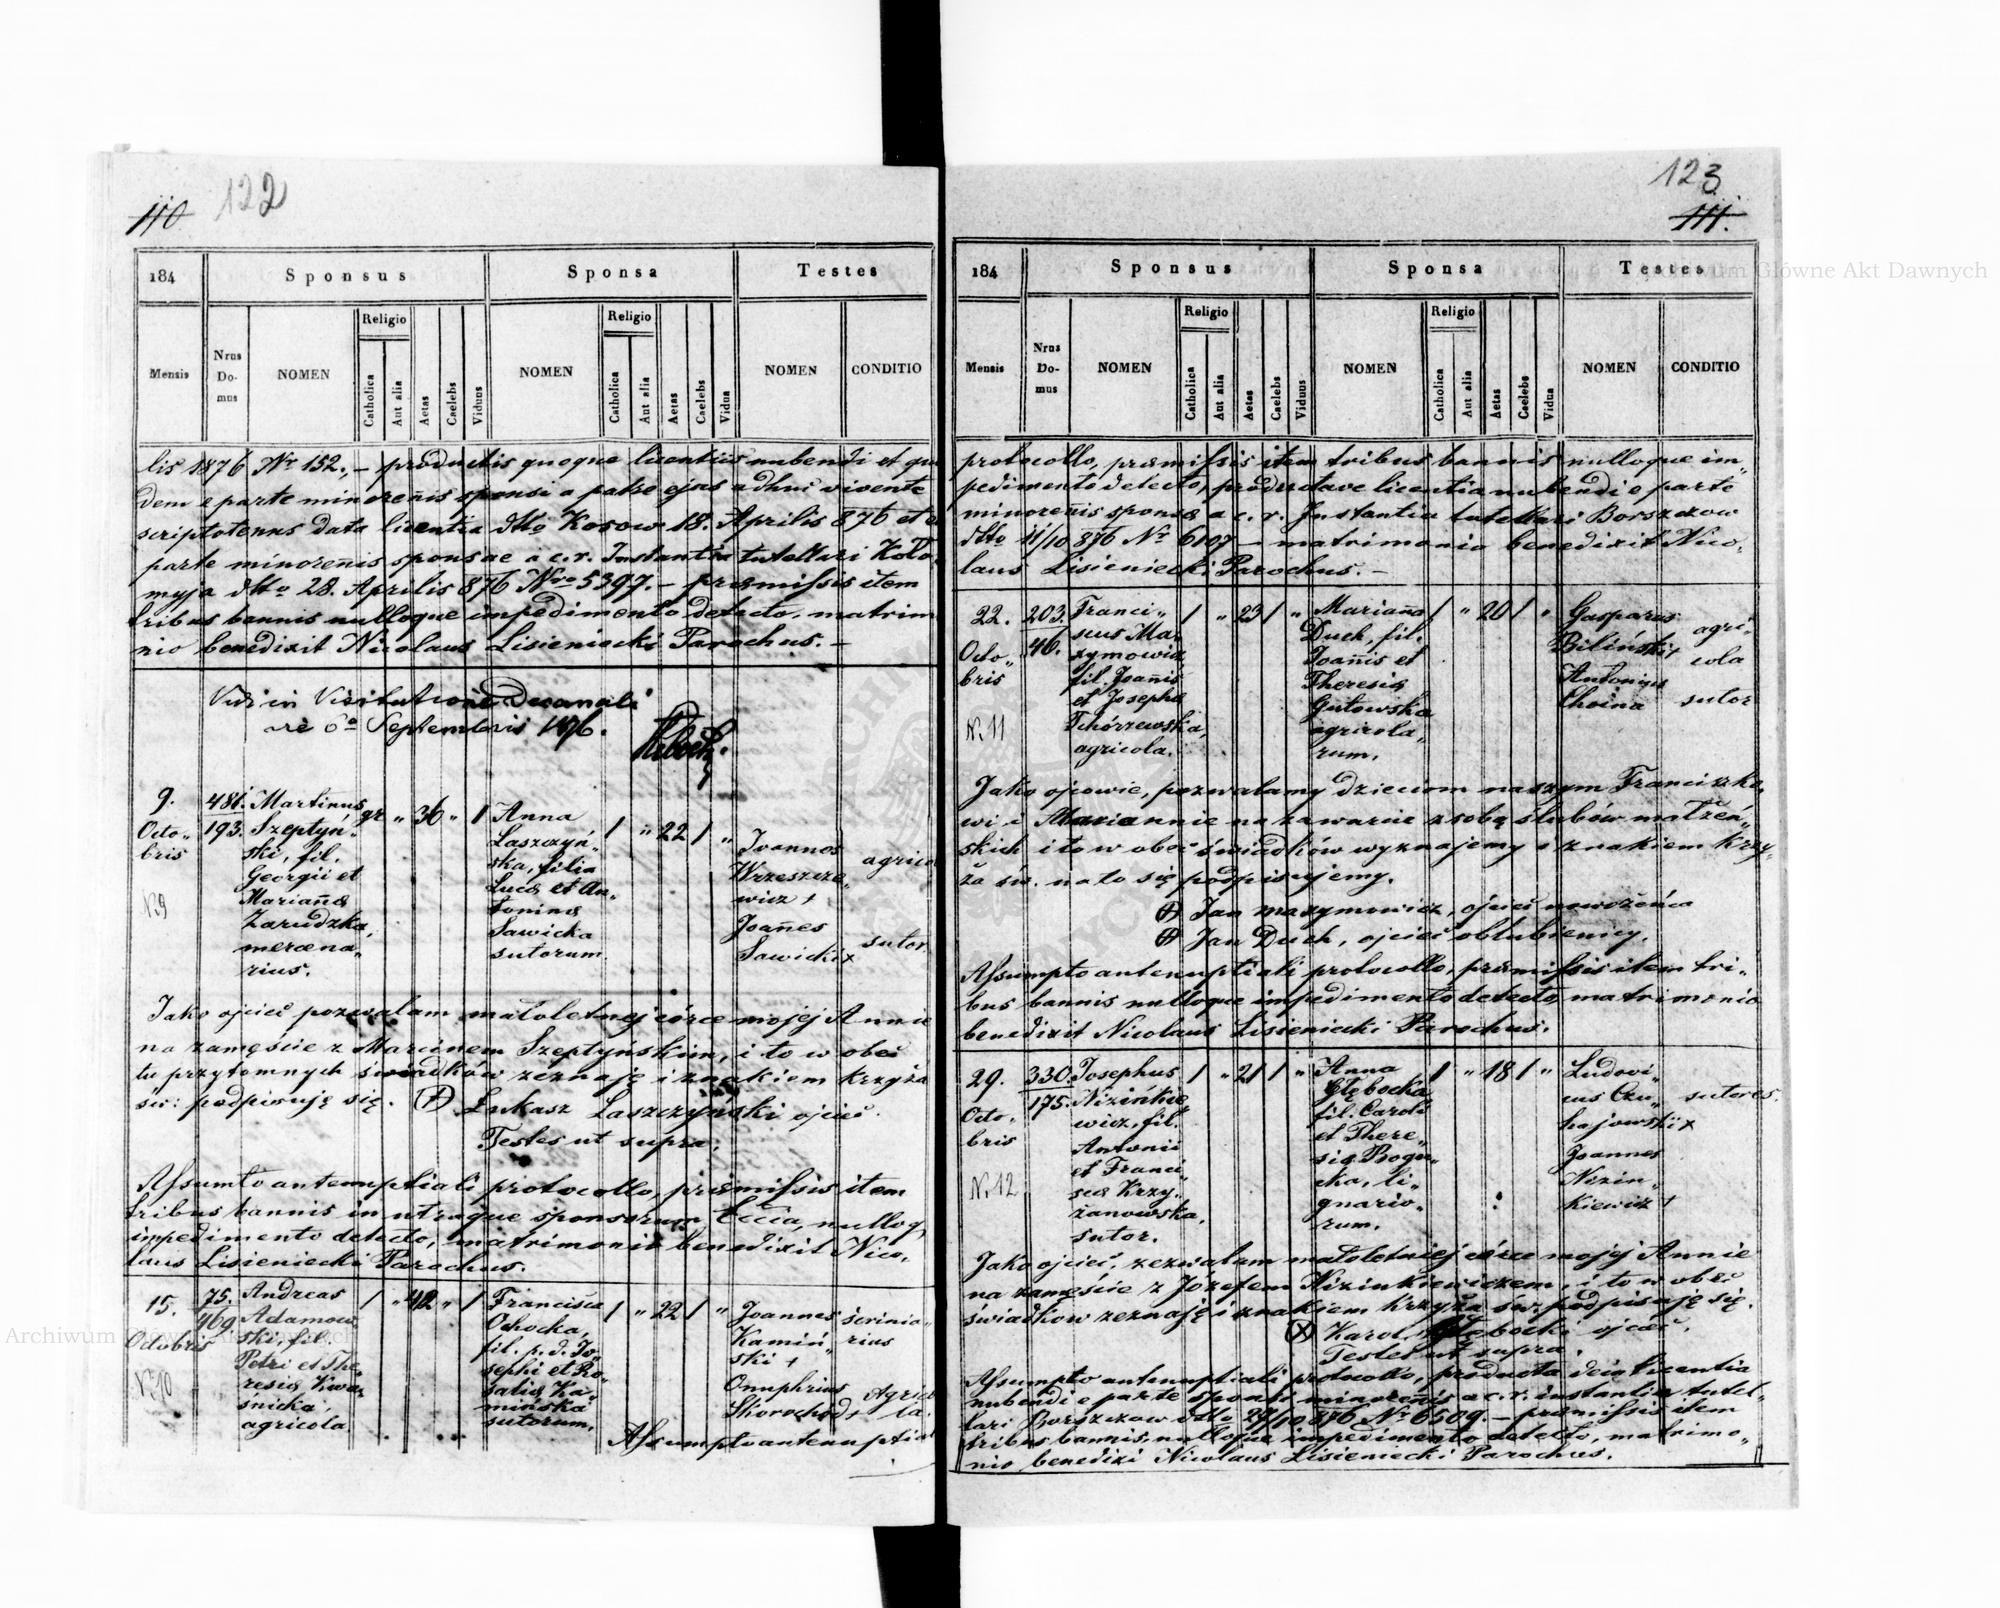 110 122
184 Sponsus Sponsa Testes
Mensis Nrus Do- mus NOMEN Religio Catholica Aut alia Aetas Caelebs Viduus NOMEN Religio Catholica Aut alia Aetas Caelebs Vidua NOMEN CONDITIO
lis 1876 Nr 152., – productis quoque licentiis nubendi et qui
dem e parte minorenis sponsi a patre ejus adhuc vivente
scriptotenus data licentia dtto Kosow 18. Aprilis 876 et e
parte minorenis sponsae a c. r. Instantia tutellari Koło„
myja dtto 28. Aprilis 876 Nro 5397. – præmissis item
tribus bannis nulloque impedimento detecto, matrim
nio benedixit Nicolaus Lisieniecki Parochus. –
Vidi in Visitatione Decanali
6a Septembris 1876.
9.
Octo„
bris
N.9
481.
193.
Martinus
Szeptyń„
ski, fil.
Georgii et
Marianæ
Zarudzka,
mercena„
rius.
gr „ 36 „ 1
Anna
Laszczyń„
ska, filia
Lucæ et An„
toninæ
Sawicka
sutorum.
1 „ 22 1 „
Joannes
Wrzeszcze„
wicz +
Joañes
Sawicki x
agrico
sutor.
Jako ojciec pozwalam małoletnej córce mojej Annie
na zamęście z Marcinem Szeptyńskim, i to w obec
tu przytomnych świadków zeznaję i znakiem krzyża
św: podpisuję się. (+) Łukasz Laszczyński ojciec.
Testes ut supra.
Assumto antenuptiali protocollo, præmissis item
tribus bannis in utraque sponsorum Eccia, nulloq
impedimento detecto, matrimonio benedixit Nico„
laus Lisieniecki Parochus.
15.
Octobris
N. 10
75.
469.
Andreas
Adamow„
ski, fil.
Petri et The„
resiæ Kwa„
śnicka,
agricola
1 „ 42 „ 1
Francisca
Ochocka,
fil. p. d. Jo„
sephi et Ro„
saliæ Ka„
mińska
sutorum.
1 „ 22 1 „
Joannes
Kamiń„
ski +
Onuphrius
Skorochod +
scrinia„
rius
Agrico
la.
Assumpto antenuptia
123
111.
184 Sponsus Sponsa Testes
Mensis Nrus Do- mus NOMEN Religio Catholica Aut alia Aetas Caelebs Viduus NOMEN Religio Catholica Aut alia Aetas Caelebs Vidua NOMEN CONDITIO
protocollo, præmissis item tribus bannis nulloque im„
pedimento detecto, productave licentia nubendi e parte
minorenis sponsæ a c. r. Instantia tutellari Borszczow
dtto 11/10 876 Nr 6107 – matrimonio benedixit Nico„
laus Lisieniecki Parochus. –
22.
Octo„
bris
N. 11
203.
46.
Franci„
scus Ma„
zymowicz
fil. Joañis
et Josephæ
Tchórzewska,
agricola.
1 „ 23 1 „
Mariaña
Duch, fil.
Joañis et
Theresiæ
Gutowska
agricola„
rum.
1 „ 20 1 „
Gasparus
Biliński +
Antonius
Choina
agri„
cola
sutor
Jako ojcowie, pozwalamy dzieciom naszym Franciszko„
wi i Mariannie na zawarcie z sobą ślubów małżeń„
skich i to w obec świadków wyznajemy i znakiem krzy„
ża św. na to się podpisujemy.
(+) Jan Mazymowicz, ojciec nowożeńca
(+) Jan Duch, ojciec oblubienicy.
Assumpto antenuptiali protocollo, præmissis item tri„
bus bannis nulloque impedimento detecto, matrimonio
benedixit Nicolaus Lisieniecki Parochus.
29.
Octo„
bris
N. 12
330.
175.
Josephus
Nizinkie„
wicz, fil.
Antonii
et Franci„
scæ Krzy„
żanowska,
sutor.
1 „ 21 1 „
Anna
Głębocka
fil. Caroli
et There„
siæ Rogu„
cka, li„
gnario„
rum.
1 „ 18 1 „
Ludovi„
cus Czu„
hajowski x
Joannes
Nizin„
kiewicz +
sutores.
Jako ojciec, zezwalam małoletniej córce mojej Annie
na zamęście z Józefem Nizinkiewiczem, i to w obec
świadków zeznaję i znakiem krzyża św. podpisuję się.
(x) Karol Głębocki ojciec.
Testes ut supra.
Assumpto antenuptiali protocollo, producta licentia
nubendi e parte sponsi minorenis a c. r. instantia tutel„
lari Borszczow dtto 29/10 876 Nr 6509. – præmissis item
tribus bannis, nulloque impedimento detecto, matrimo„
nio benedixi Nicolaus Lisieniecki Parochus.
Archiwum Główne Akt Dawnych
Archiwum Główne Akt Dawnych